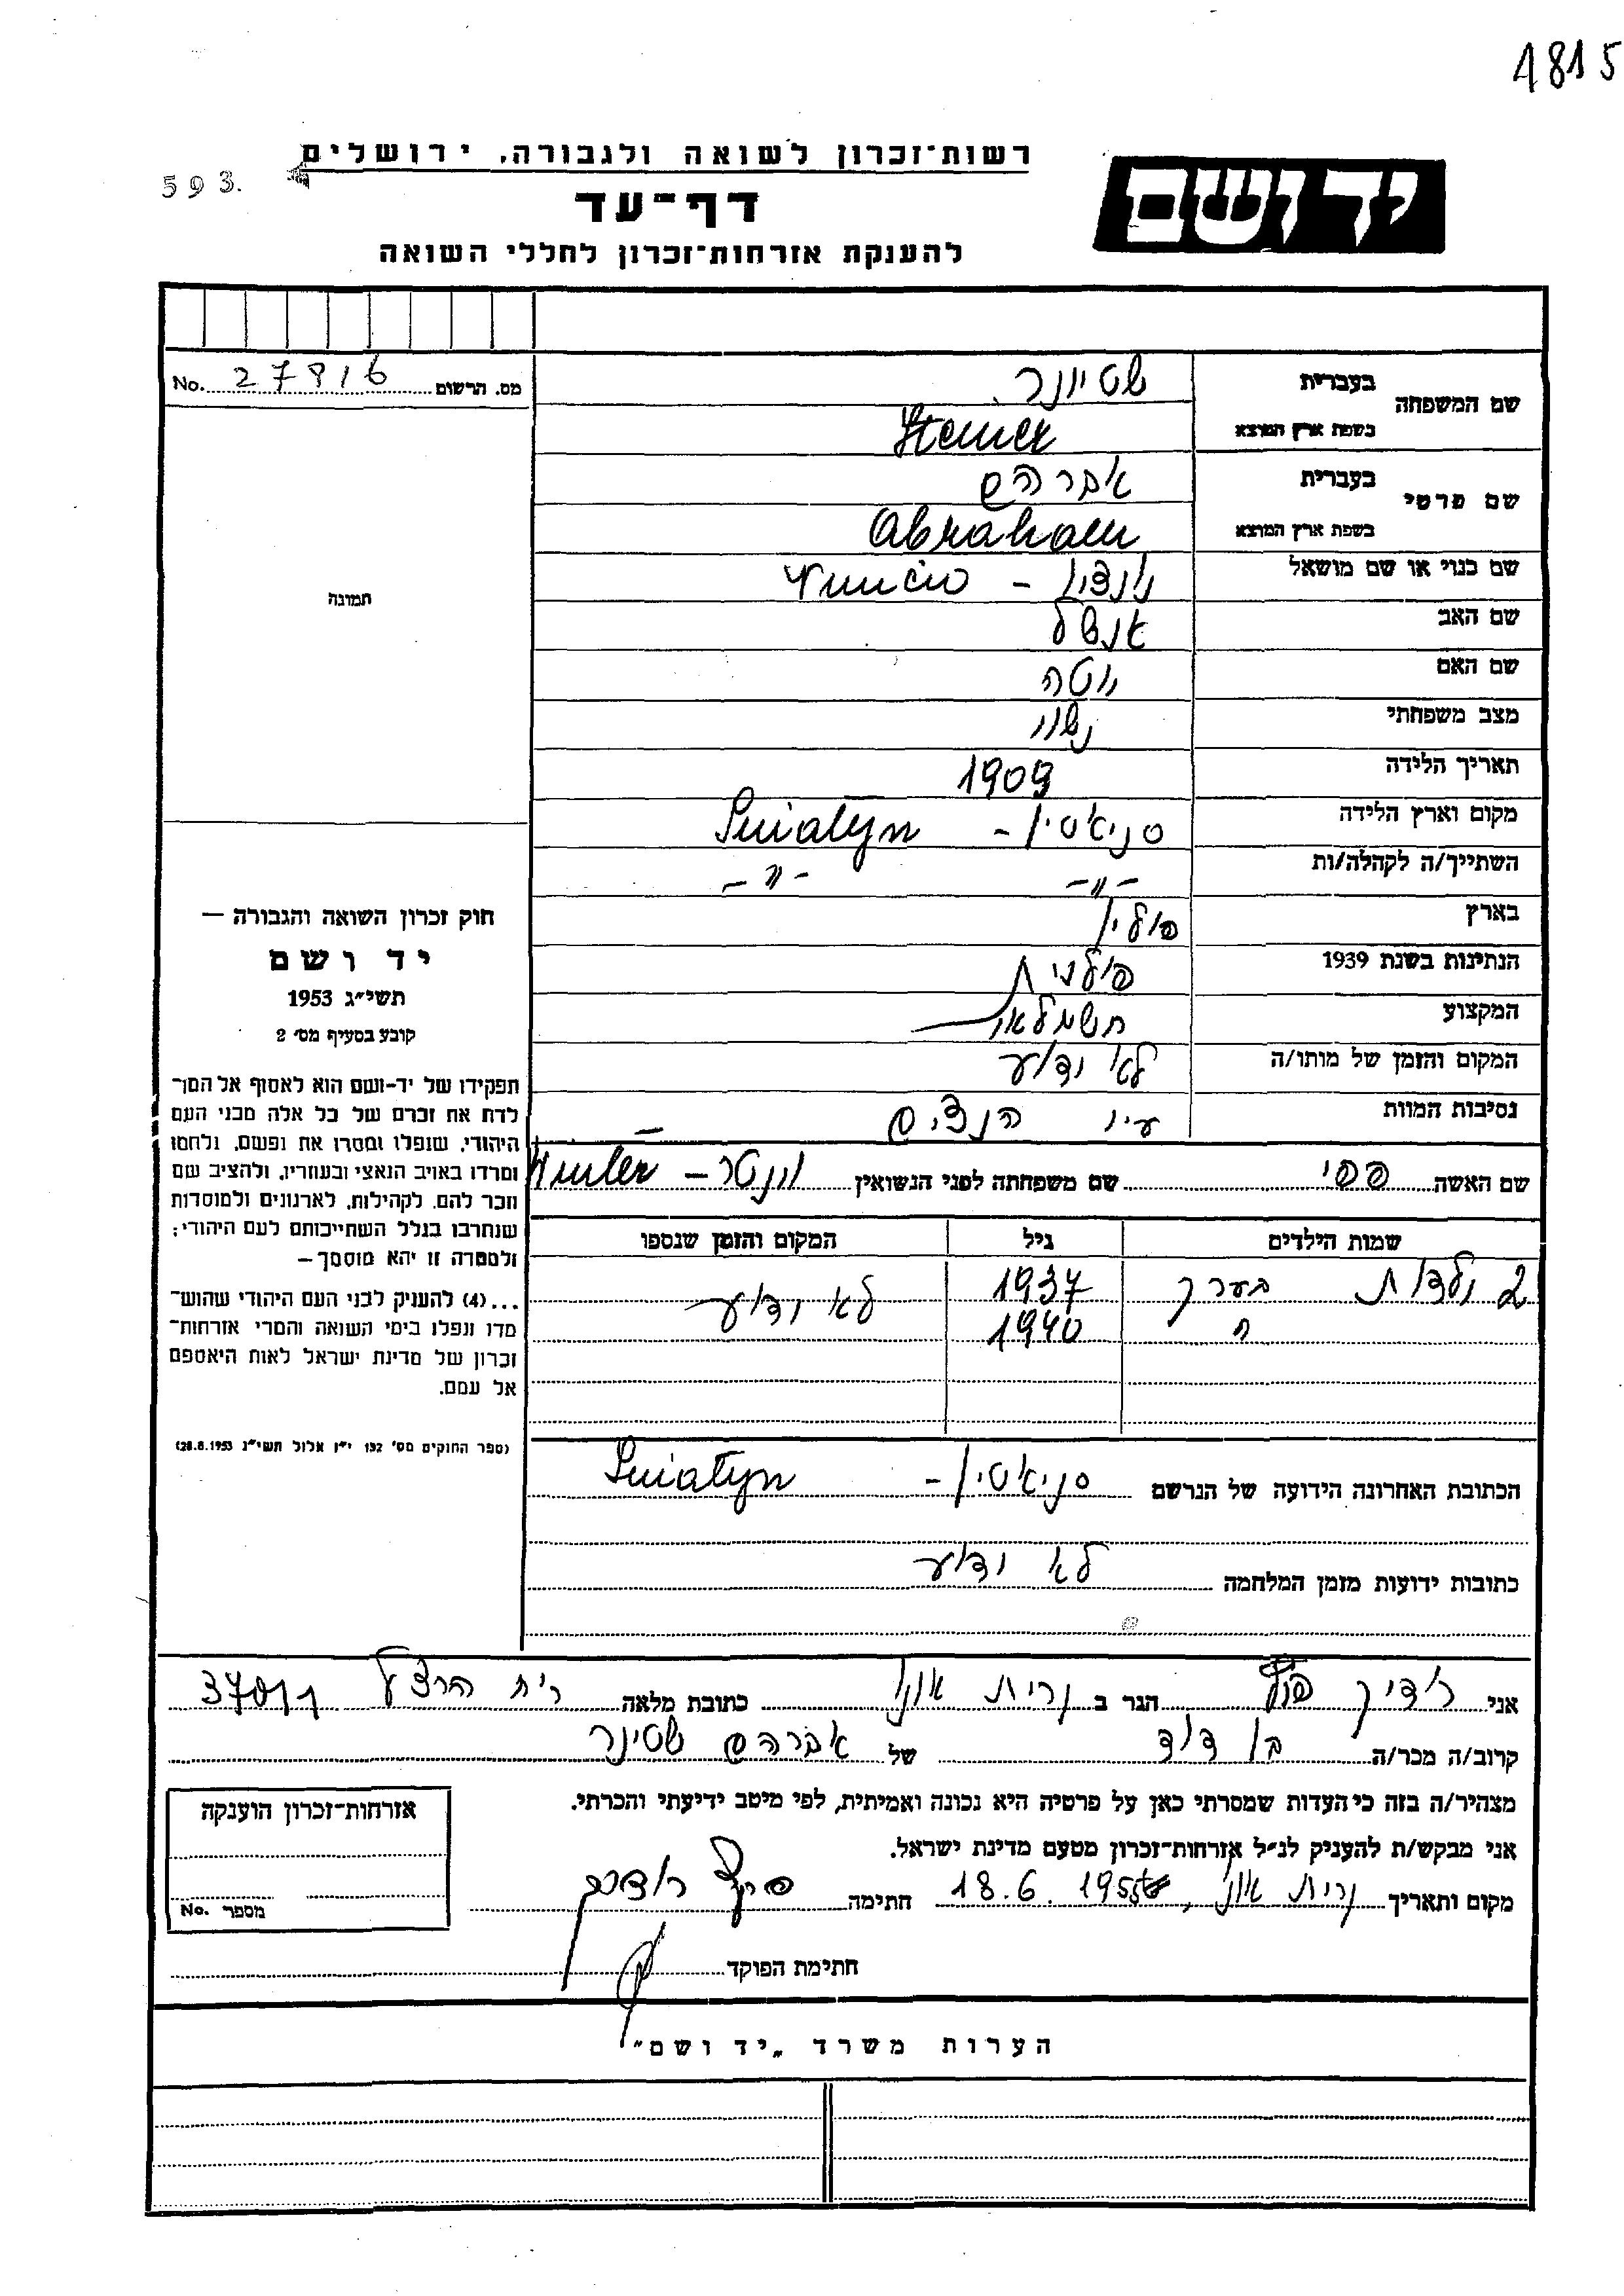 1815
רשות־זכרון לשואה ולגבורה, ירושלים
593.
דף־עד
יד ושם
להענקת אזרחות־זכרון לחללי השואה
מס. הרשום 27816 No.
שם המשפחה בעברית שטיינר
בשפת ארץ המוצא Steiner
שם פרטי בעברית אברהם
בשפת ארץ המוצא Abraham
שם כנוי או שם מושאל
שם האב אנשל
שם האם יטה
מצב משפחתי נשוי
תאריך הלידה 1909
מקום וארץ הלידה סניאטין - Sniatyn
השתייך/ה לקהלה/ות -"- -"-
בארץ פולין
הנתינות בשנת 1939 פולנית
המקצוע חשמלאי
המקום והזמן של מותו/ה לא ידוע
נסיבות המוות ע"י הנצים
שם האשה פפי שם משפחתה לפני הנשואין ונטר - Winter
שמות הילדים גיל המקום והזמן שנספו
2 ילדות בערך 1937 לא ידוע
" 1940
הכתובת האחרונה הידועה של הנרשם סניאטין - Sniatyn
כתובות ידועות מזמן המלחמה לא ידוע
תמונה
חוק זכרון השואה והגבורה —
יד ושם
תשי״ג 1953
קובע בסעיף מס׳ 2
תפקידו של יד־ושם הוא לאסוף אל המו־
לדת את זכרם של כל אלה מבני העם
היהודי, שנפלו ומסרו את נפשם, נלחמו
ומרדו באויב הנאצי ובעוזריו, ולהציב שם
וזכר להם, לקהילות, לארגונים ולמוסדות
שנחרבו בגלל השתייכותם לעם היהודי;
ולמטרה זו יהא מוסמך —
...(4) להעניק לבני העם היהודי שהוש־
מדו ונפלו בימי השואה והמרי אזרחות־
זכרון של מדינת ישראל לאות היאספם
אל עמם.
(ספר החוקים מס׳ 132 י״ז אלול תשי״ג 28.8.1953)
אני הגר ב קרית אונו כתובת מלאה רח הרצל
קרוב/ה מכר/ה בן דוד של אברהם שטינר
מצהיר/ה בזה כי העדות שמסרתי כאן על פרטיה היא נכונה ואמיתית, לפי מיטב ידיעתי והכרתי.
אני מבקש/ת להעניק לנ״ל אזרחות־זכרון מטעם מדינת ישראל.
מקום ותאריך קרית אונו, 18.6. חתימה
חתימת הפוקד
אזרחות־זכרון הוענקה
מספר No.
הערות משרד „יד ושם״